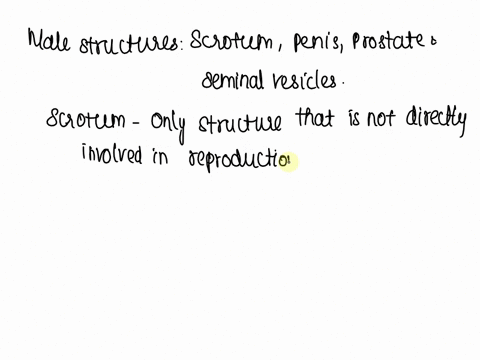 Male structures: Scrotum, penis, prostate &
seminal vesicles.
Scrotum - Only structure that is not directly
involved in reproduction